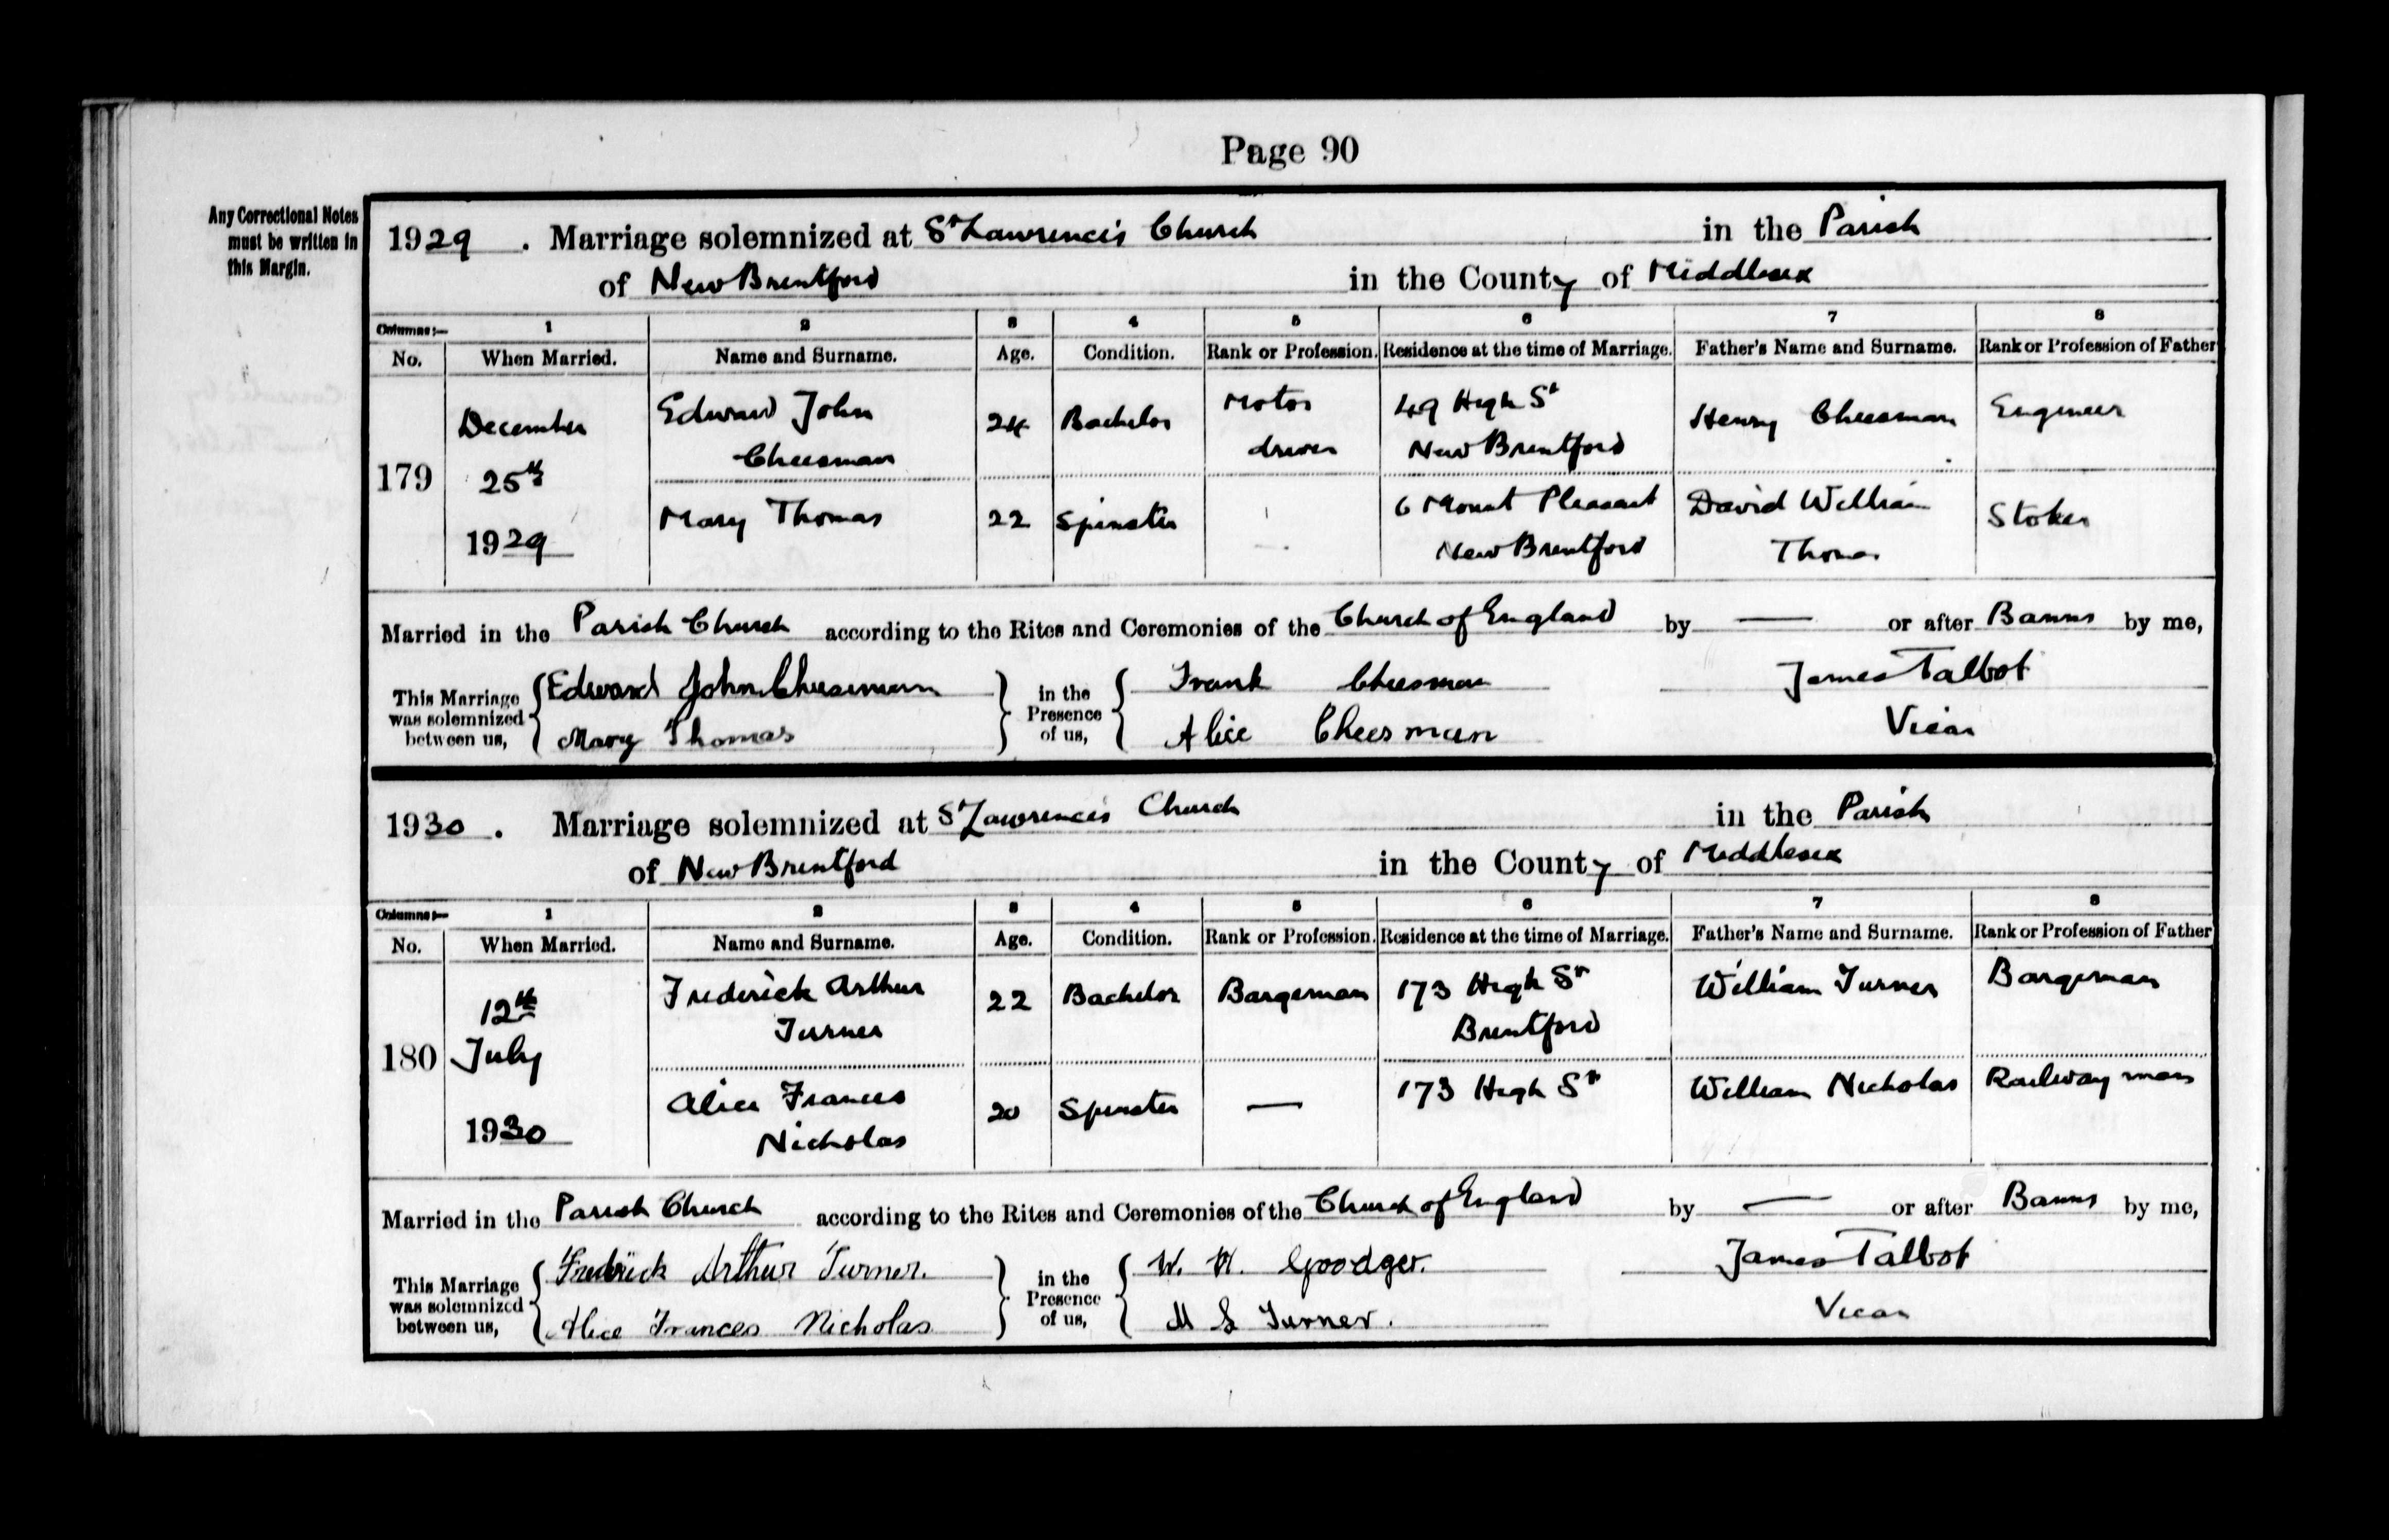 Page 90
Any Correctional Notes
must be written in
this Margin.
1929. Marriage solemnized at St Lawrence's Church in the Parish
of New Brentford in the County of Middlesex
Columns:— 1 2 3 4 5 6 7 8
No. When Married. Name and Surname. Age. Condition. Rank or Profession. Residence at the time of Marriage. Father's Name and Surname. Rank or Profession of Father
179 December 25th 1929 Edward John Cheesman 24 Bachelor Motor driver 49 High St New Brentford Henry Cheesman Engineer
Mary Thomas 22 Spinster — 6 Mount Pleasant New Brentford David William Thomas Stoker
Married in the Parish Church according to the Rites and Ceremonies of the Church of England by — or after Banns by me,
This Marriage was solemnized between us, Edward John Cheesman in the Presence of us, Frank Cheesman James Talbot
Mary Thomas Alice Cheesman Vicar
1930. Marriage solemnized at St Lawrence's Church in the Parish
of New Brentford in the County of Middlesex
Columns:— 1 2 3 4 5 6 7 8
No. When Married. Name and Surname. Age. Condition. Rank or Profession. Residence at the time of Marriage. Father's Name and Surname. Rank or Profession of Father
180 12th July 1930 Frederick Arthur Turner 22 Bachelor Bargeman 173 High St Brentford William Turner Bargeman
Alice Frances Nicholas 20 Spinster — 173 High St William Nicholas Railway man
Married in the Parish Church according to the Rites and Ceremonies of the Church of England by — or after Banns by me,
This Marriage was solemnized between us, Fredrick Arthur Turner. in the Presence of us, W. H. Goodger. James Talbot
Alice Frances Nicholas M S Turner. Vicar